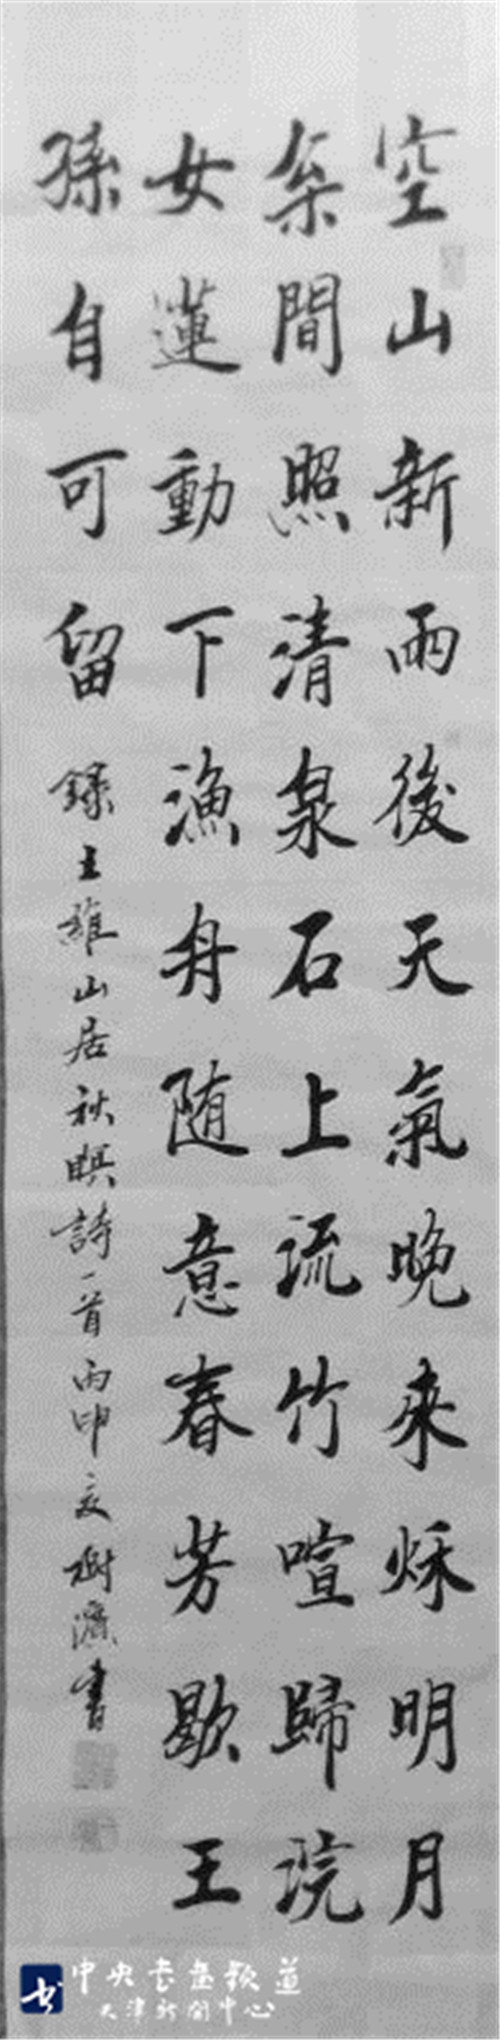 空山新雨後天氣晚来秌明月
枀間照清泉石上流竹喧歸浣
女蓮動下漁舟随意春芳歇王
孫自可留
録王維山居秋暝詩一首丙申夏樹濂書
书
中央书画频道
天津新闻中心